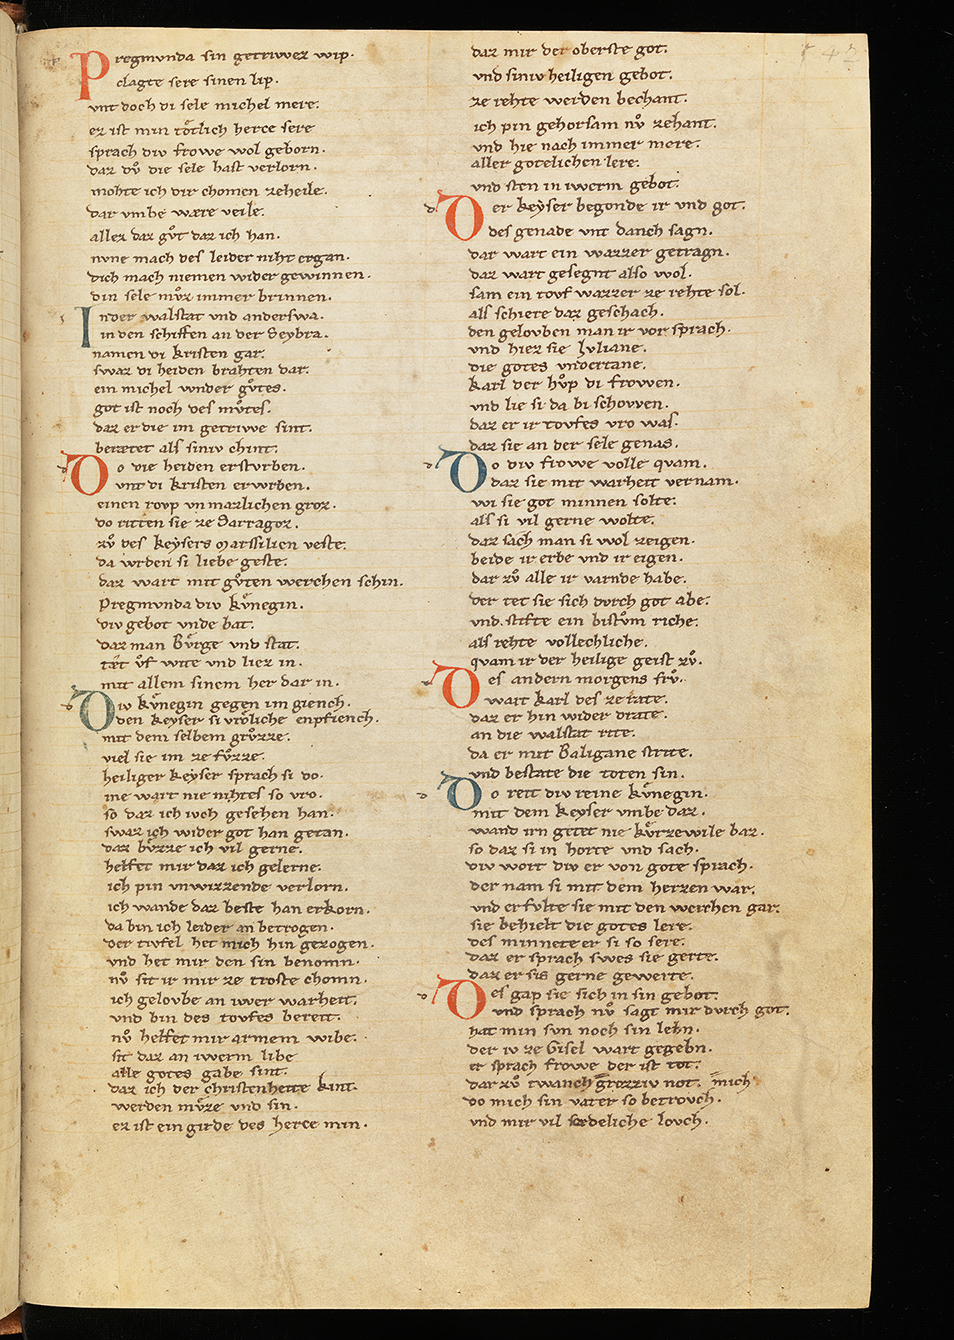 Pregmvnda sin getriwez wip.
clagte sere sinen lip.
vnt doch di sele michel mere.
ez ist min toͤtlich herce sere
sprach div frowe wol geborn.
daz dvͦ die sele hast verlorn.
mohte ich dir chomen zeheile.
dar vmbe wære veile.
allez daz gvͦt daz ich han.
nvne mach des leider niht ergan.
dich mach niemen wider gewinnen.
din sele mvͦz immer brinnen.
In der walstat vnd anderswa.
in den schiffen an der Seybra.
namen di kristen gar.
swaz di heiden brahten dar.
ein michel wnder gvͦtes.
got ist noch des mvͦtes.
daz er die im getriwe sint.
berætet als siniv chint.
Do die heiden ersturben.
vnt di kristen erwrben.
einen rovp vnmazlichen groz.
do ritten sie ze Sarragoz.
zvͦ des keysers Marssilien veste.
da wrden si liebe geste.
daz wart mit gvͦten werchen schin.
Pregmvnda div kvͤnegin.
div gebot vnde bat.
daz man Bvͤrge vnd stat.
tæt vͦf wite vnd liez in.
mit allem sinem her dar in.
Div kvͤnegin gegen im giench.
den keyser si vrͦliche enpfiench.
mit dem selbem grvͦzze.
viel sie im ze fvͦzze.
heiliger keyser sprach si do.
ine wart nie nihtes so vro.
so daz ich ivch gesehen han.
swaz ich wider got han getan.
daz bvͤzze ich vil gerne.
helfet mir daz ich gelerne.
ich pin vnwizzende verlorn.
ich wande daz beste han erkorn.
da bin ich leider an betrogen.
der tivfel het mich hin gezogen.
vnd het mir den sin benomn.
nvͦ sit ir mir ze troste chomn.
ich gelovbe an iwer warheit.
vnd bin des tovfes bereit.
nvͦ helfet mir armem wibe.
sit daz an iwerm libe
alle gotes gabe sint.
daz ich der christenheite kint.
werden mvͤze vnd sin.
ez ist ein girde des herce min.
daz mir der oberste got.
vnd siniv heiligen gebot.
ze rehte werden bechant.
ich pin gehorsam nvͦ zehant.
vnd hie nach immer mere.
aller gotelichen lere.
vnd sten in iwerm gebot.
Der keyser begonde ir vnd got.
des genade vnt danch sagn.
dar wart ein wazzer getragn.
daz wart gesegnt also wol.
sam ein tovf wazzer ze rehte sol.
als schiere daz geschach.
den gelovben man ir vor sprach.
vnd hiez sie Jvliane.
die gotes vndertane.
Karl der hvͦp di frowen.
vnd lie si da bi schowen.
daz er ir tovfes vro was.
daz sie an der sele genas.
Do div frowe volle quam.
daz sie mit warheit vernam.
wi sie got minnen solte.
als si vil gerne wolte.
daz sach man si wol zeigen.
beide ir erbe vnd ir eigen.
dar zvͦ alle ir varnde habe.
der tet sie sich dvrch got abe.
vnd stifte ein bistvͦm riche.
als rehte vollechliche.
quam ir der heilige geist zvͦ.
Des andern morgens frvͦ.
wart karl des ze rate.
daz er hin wider drate.
an die walstat rite.
da er mit Baligane strite.
vnd bestate die toten sin.
Do rett div reine kvͤnegin.
mit dem keyser vmbe daz.
wand irn getet nie kvͤrzewile baz.
so daz si in horte vnd sach.
div wort div er von gote sprach.
der nam si mit dem herzen war.
vnd ervulte sie mit den werchen gar.
sie behielt die gotes lere.
des minnete er si so sere.
daz er sprach swes sie gerte.
daz er sis gerne gewerte.
Des gap sie sich in sin gebot.
vnd sprach nvͦ sagt mir dvrch got.
hat min svn noch sin lebn.
der iv ze Gisel wart gegebn.
er sprach frowe der ist tot.
dar zvͦ twanch grozziv not. mich
do mich sin vater so betrovch.
vnd mir vil schedeliche lovch.